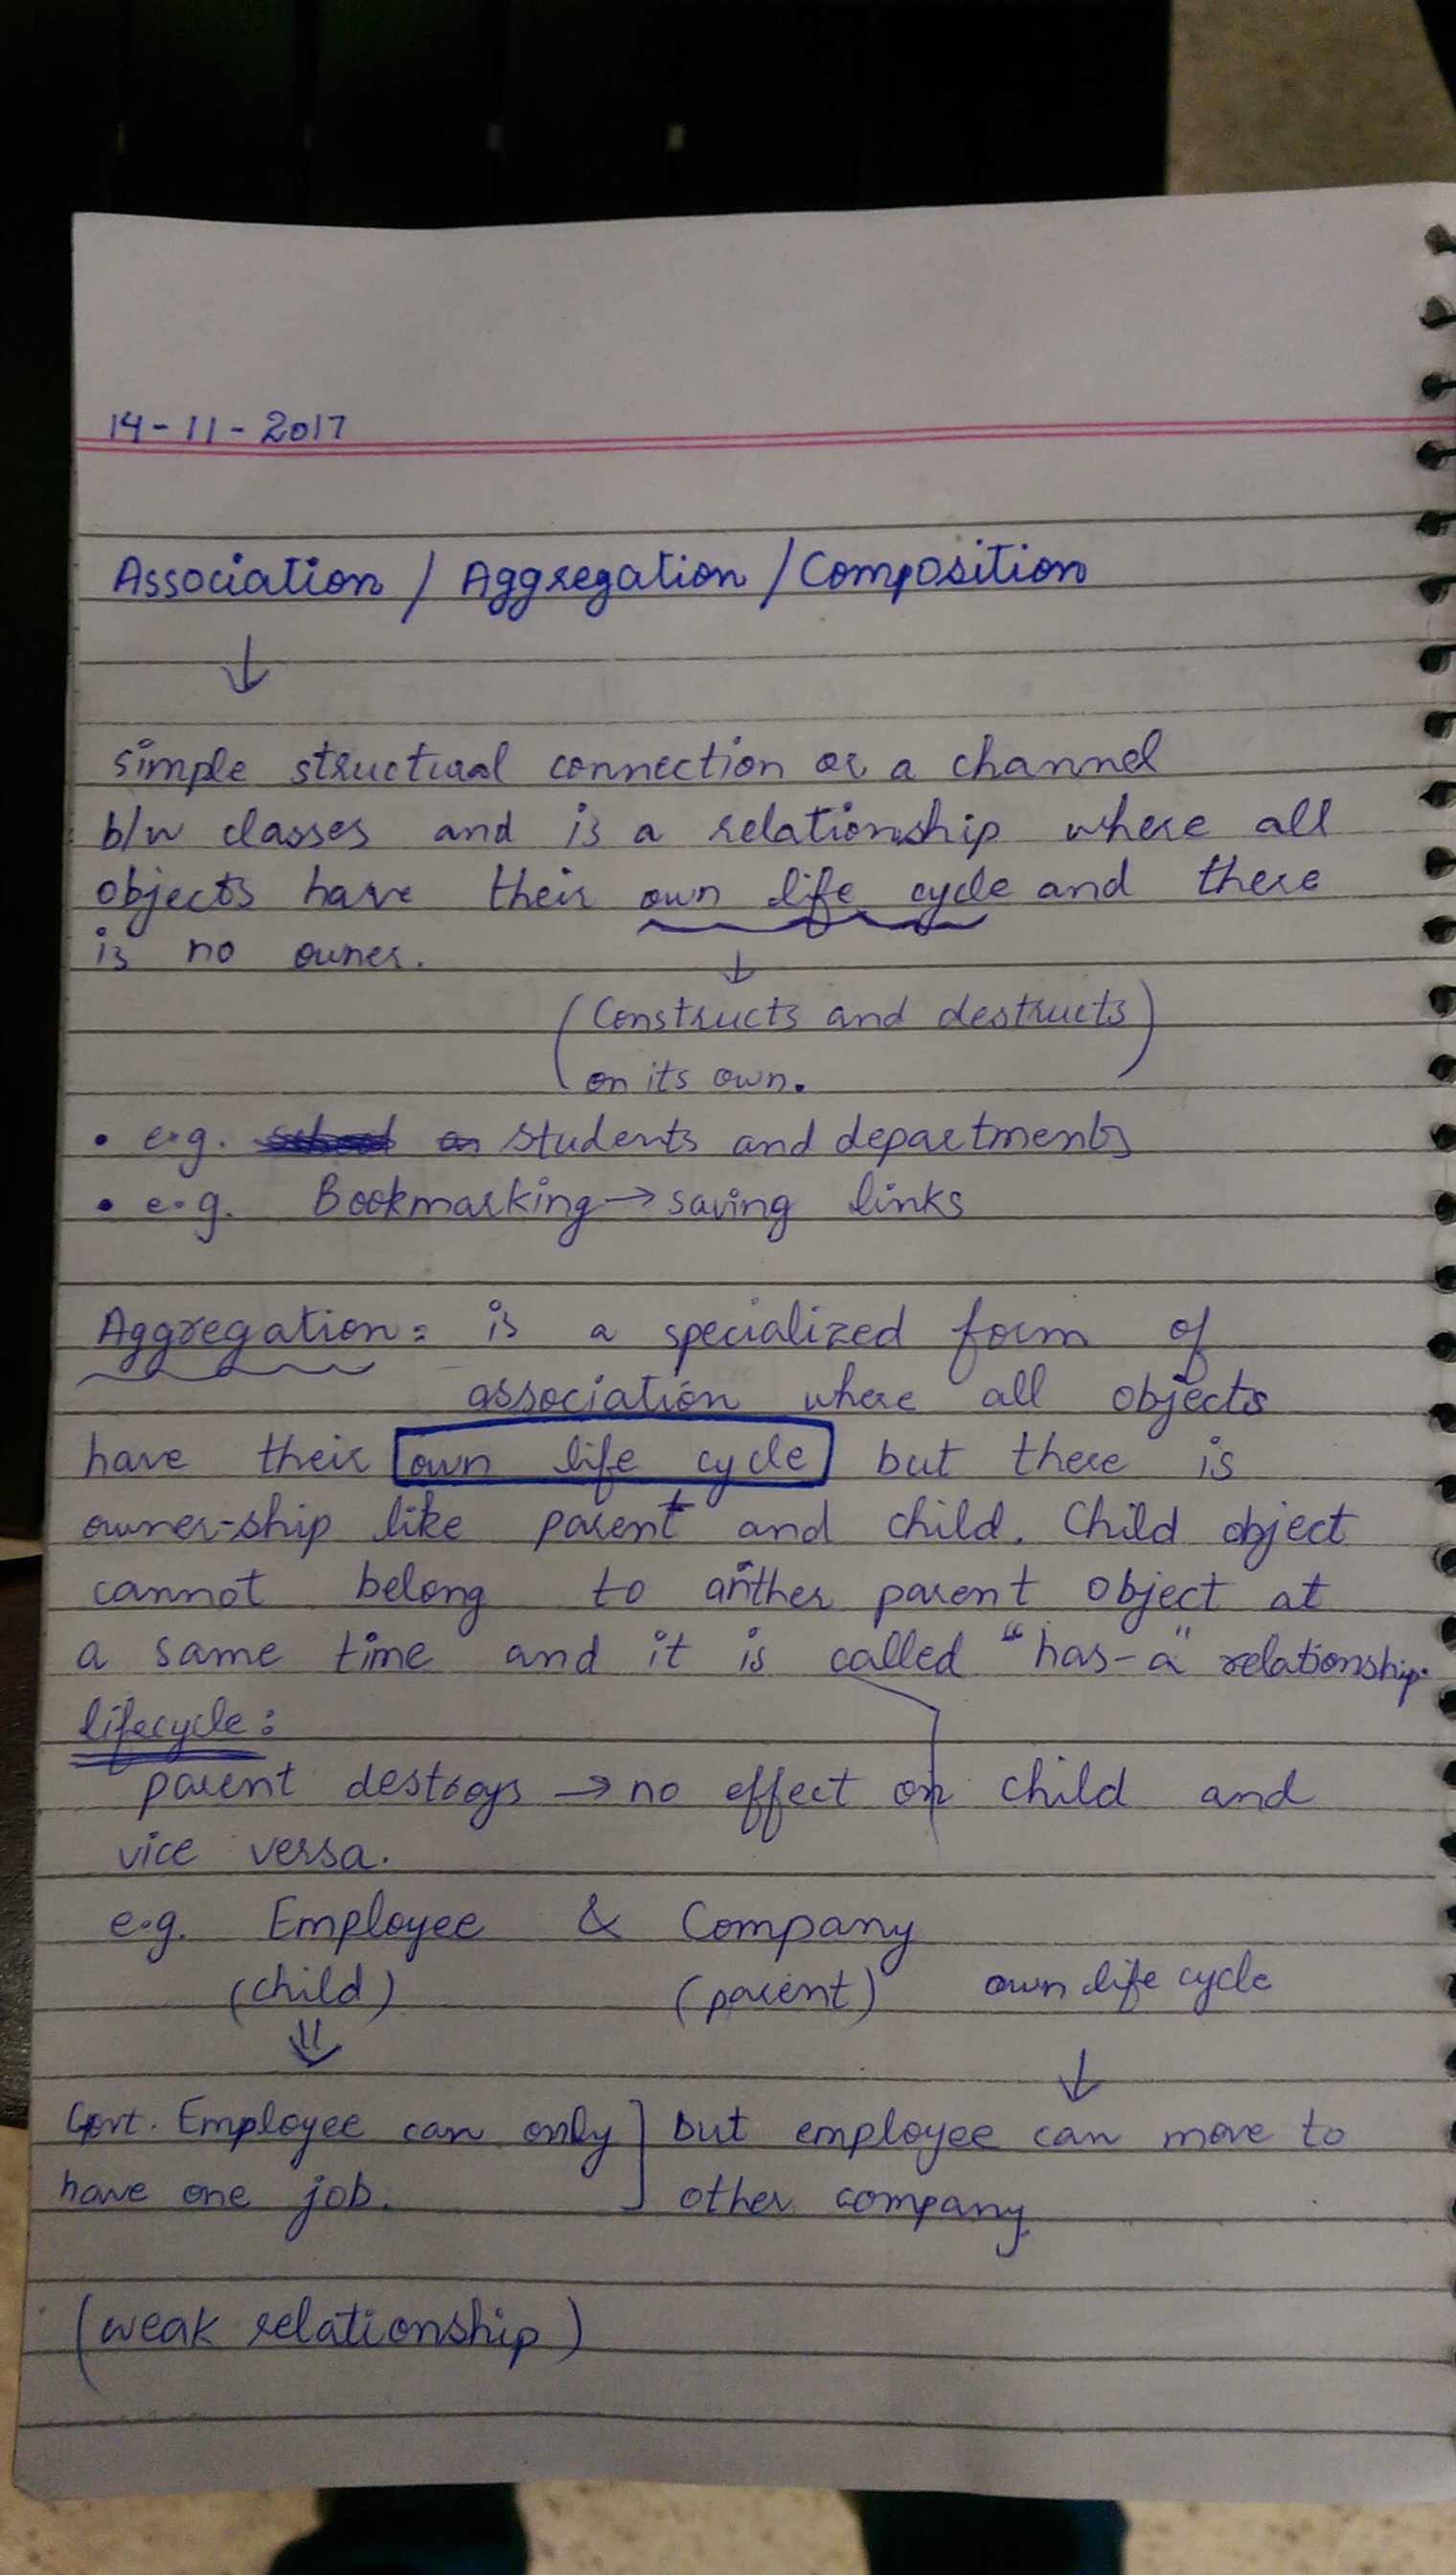 14-11-2017
Association / Aggregation / Composition
↓
simple structural connection or a channel
b/w classes and is a relationship where all
objects have their own life cycle and there
is no owner.
↓
(Constructs and destructs
on its own.)
• e.g. students and departments
• e.g. Bookmarking → saving links
Aggregation: is a specialized form of
association where all objects
have their own life cycle but there is
owner-ship like parent and child. Child object
cannot belong to anther parent object at
a same time and it is called "has-a" relationship.
lifecycle:
parent destroys → no effect on child and
vice versa.
e.g. Employee & Company
(child) (parent) own life cycle
⇓ ↓
Govt. Employee can only ] but employee can move to
have one job. other company
(weak relationship)